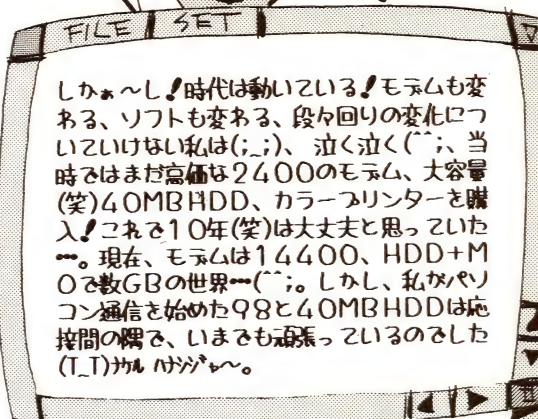 FILE SET
しかぁ〜し！時代は動いている！モデムも変
わる、ソフトも変わる、段々回りの変化につ
いていけない私は(;_;)、泣く泣く(^^;、当
時ではまだ高価な2400のモデム、大容量
(笑)40MBHDD、カラープリンターを購
入！これで10年(笑)は大丈夫と思っていた
…。現在、モデムは14400、HDD+M
Oで数GBの世界…(^^;。しかし、私がパソ
コン通信を始めた98と40MBHDDは応
接間の隅で、いまでも頑張っているのでした
(T_T)ナサケル ハナシジャ〜。